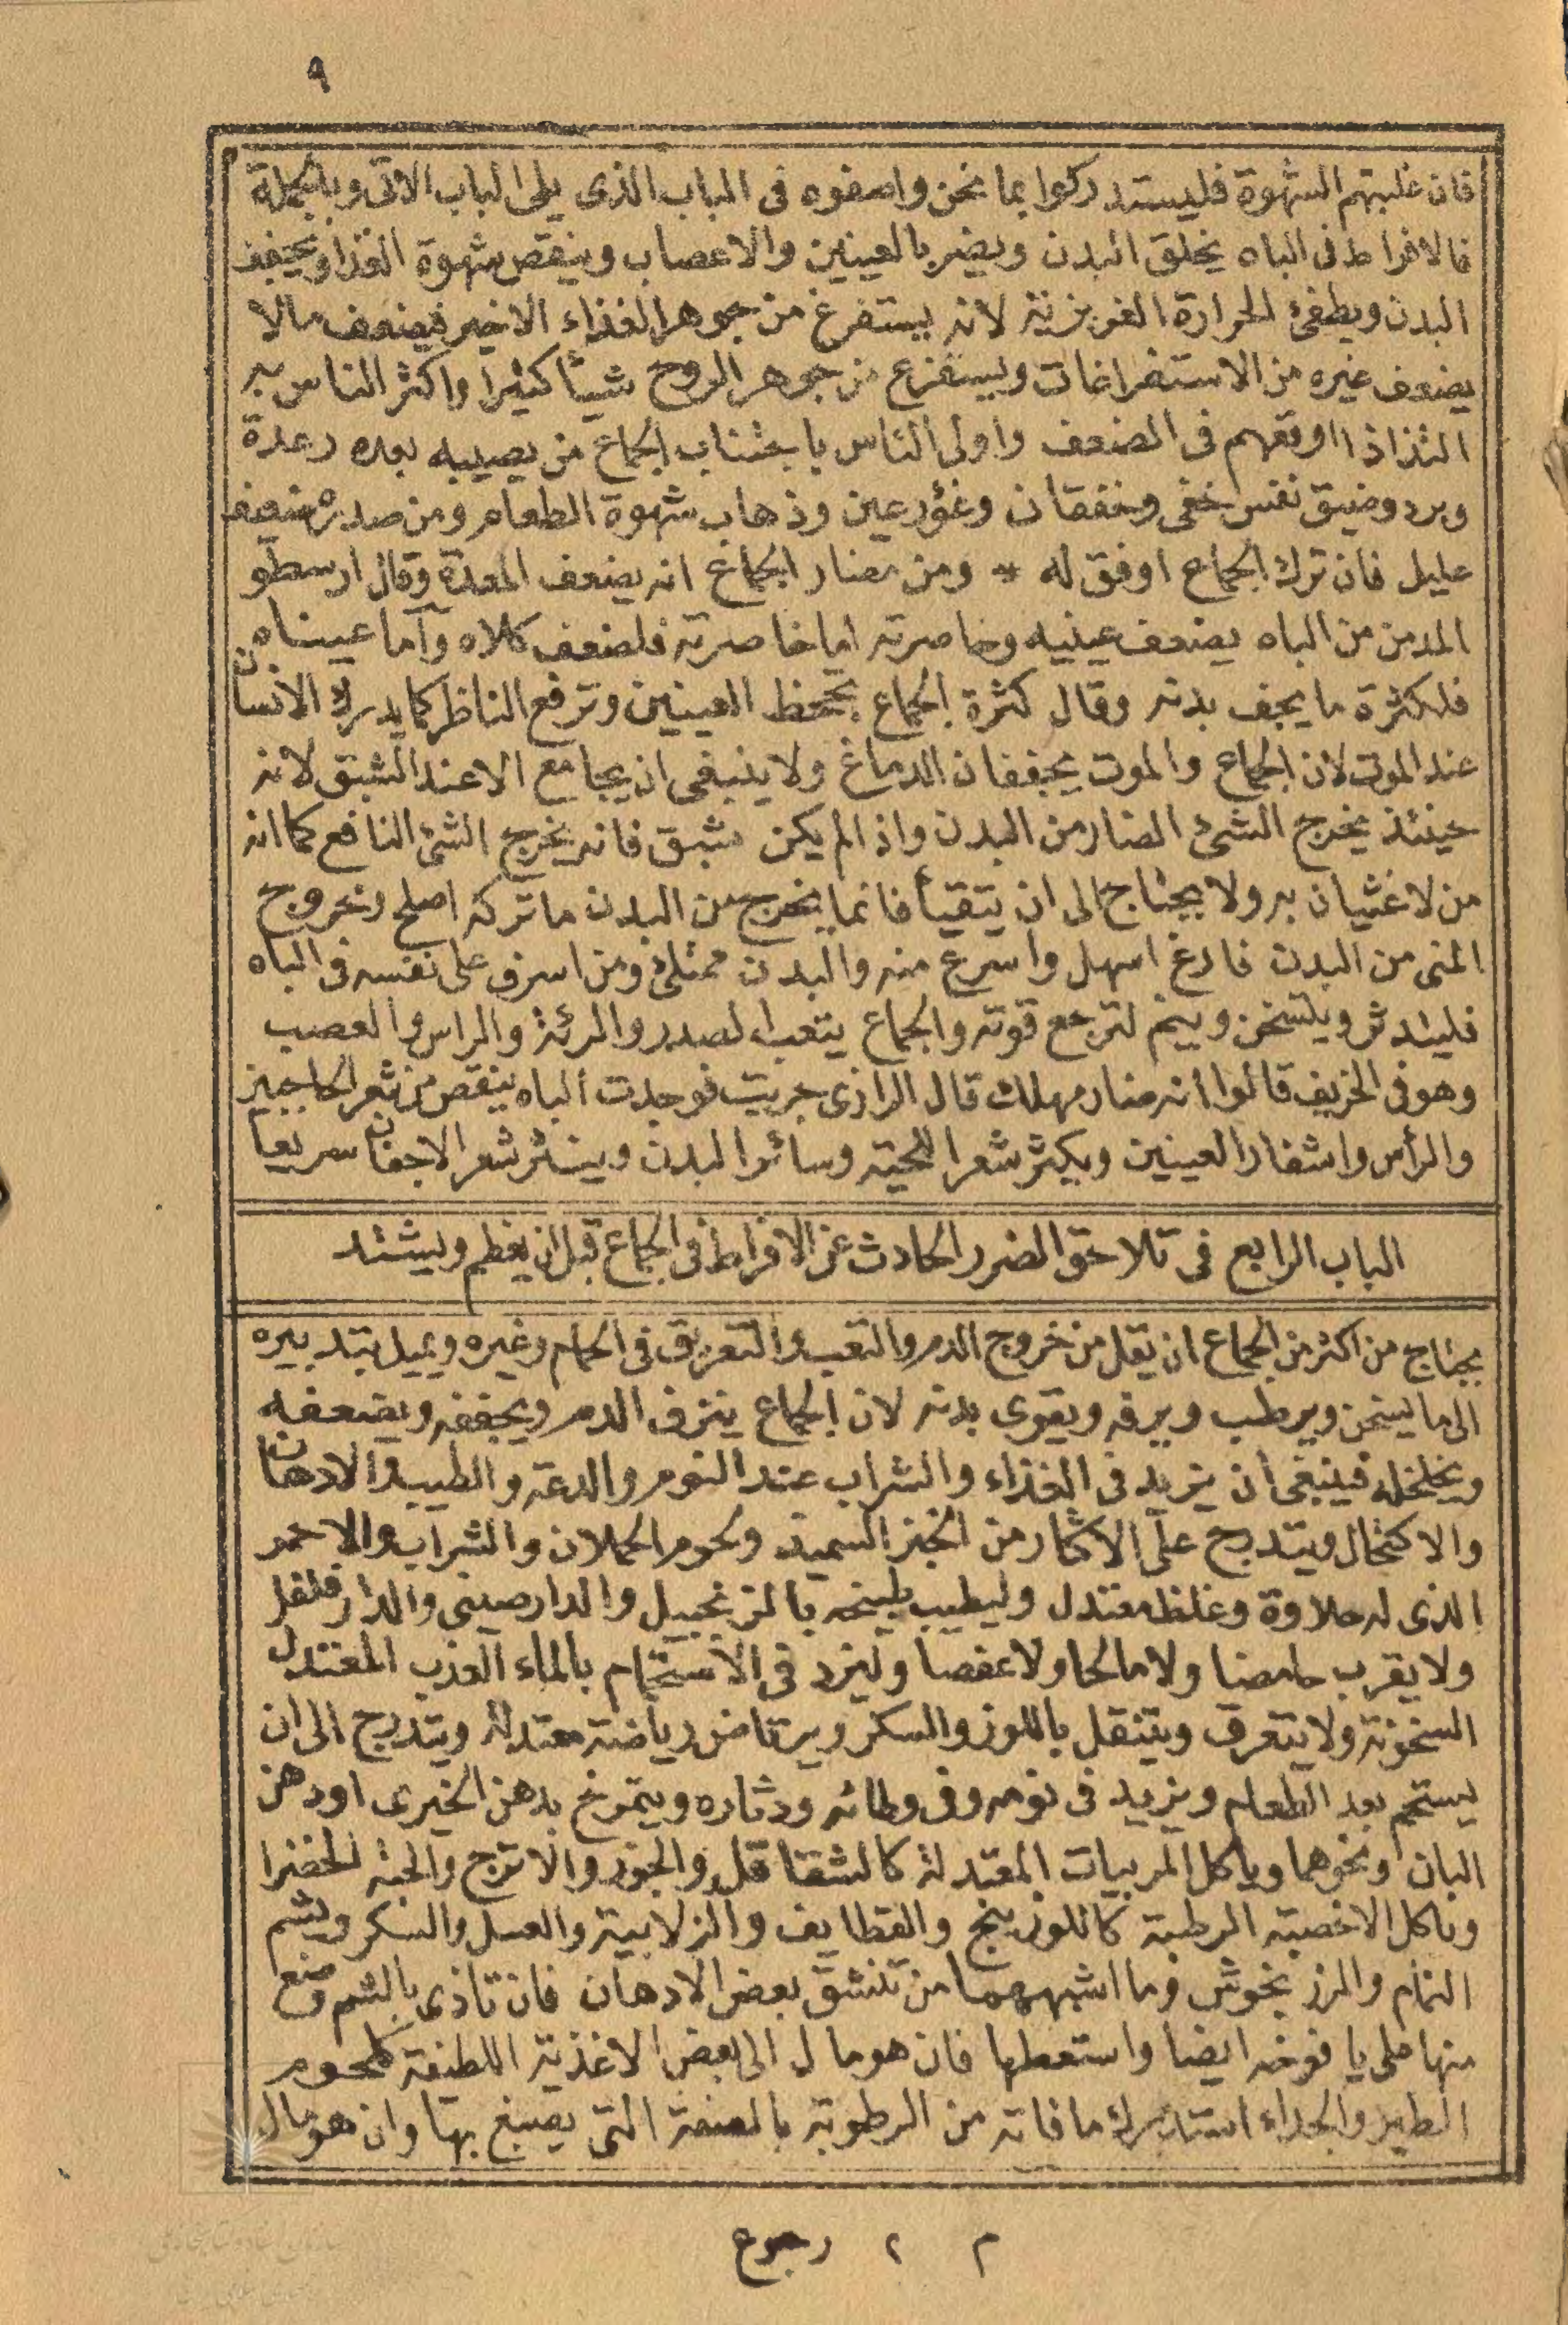 ٩
فان غلبتهم الشهوة فليستدركوا بما نحن واصفوه فى الباب الذى يلى الباب الاتى وبالجملة
فالافراط فى الباه يخلق البدن ويضر بالعينين والاعصاب وينقص شهوة الغذا ويجفف
البدن ويطفئ الحرارة الغريزية لانه يستفرغ من جوهر الغذاء الاخير فيضعف مالا
يضعف غيره من الاستفراغات ويستفرغ من جوهر الروح شيأ كثيرا واكثر الناس به
التذاذا اوقعهم فى الضعف واولى الناس باجتناب الجماع من يصيبه بعده رعدة
وبرد وضيق نفس خفى وخفقان وغؤر عين وذهاب شهوة الطعام ومن صدره ضعيف
عليل فان ترك الجماع اوفق له * ومن مضار الجماع انه يضعف المعدة وقال ارسطو
المدمن من الباه يضعف عينيه وخاصرته اما خاصرته فلضعف كلاه وأما عيناه
فلكثرة ما يجف بدنه وقال كثرة الجماع تجحظ العينين وترفع الناظر كما يدرك الانسان
عند الموت لان الجماع والموت يجففان الدماغ ولا ينبغى ان يجامع الا عند الشبق لانه
حينئذ يخرج الشئ الضار من البدن واذا لم يكن شبق فانه يخرج الشئ النافع كما انه
من لا غثيان به ولا يحتاج الى ان يتقيأ فانما يخرج من البدن ما تركه اصلح وخروج
المنى من البدن فارغ اسهل واسرع منه والبدن ممتلئ ومن اسرف على نفسه فى الباه
فليتدثر ويتسخن وينم لترجع قوته والجماع يتعب الصدر والرئة والراس والعصب
وهو فى الخريف قالوا انه ضار مهلك قال الرازى جربت فوجدت الباه ينقص من شعر الحاجبين
والرأس واشفار العينين ويكثر شعر اللحية وسائر البدن وينثر شعر الاجفان سريعا
الباب الرابع فى تلاحق الضرر الحادث عن الافراط فى الجماع قبل ان يعظم ويشتد
يحتاج من اكثر من الجماع ان يقل من خروج الدم والتعب والتعريق فى الحمام وغيره ويميل بتدبيره
الى ما يسخن ويرطب ويرفه ويقوى بدنه لان الجماع ينزف الدم ويجففه ويضعفه
ويخلخله فينبغى ان يزيد فى الغذاء والشراب عند النوم والدعة والطيب والادهان
والاكتحال ويتدرج على الاكثار من الخبز السميد ولحوم الحملان والشراب والاحمر
الذى له حلاوة وغلظ معتدل وليطيب طبيخه بالزنجبيل والدارصينى والدارفلفل
ولا يقرب حامضا ولا مالحا ولا عفصا وليزد فى الاستحمام بالماء العذب المعتدل
السخونة ولا يتعرق ويتنقل باللوز والسكر ويرتاض رياضة معتدلة ويتدرج الى ان
يستحم بعد الطعام ويزيد فى نومه وفى وطائه ودثاره ويتمرخ بدهن الخيرى او دهن
البان ونحوهما وياكل المربيات المعتدلة كالشقاقل والجوز والاترج والحبة الخضرا
وياكل الاخصبة الرطبة كاللوزينج والقطايف والزلابية والعسل والسكر ويشم
النمام والمرزنجوش وما اشبههما من تنشق بعض الادهان فان تاذى بالشم وضع
منها على يافوخه ايضا واستعطها فان هو مال الى بعض الاغذية اللطيفة كلحوم
الطير والجداء استدرك ما فاته من الرطوبة بالصنعة التى يصبغ بها وان هو مال
م ٢ رجوع